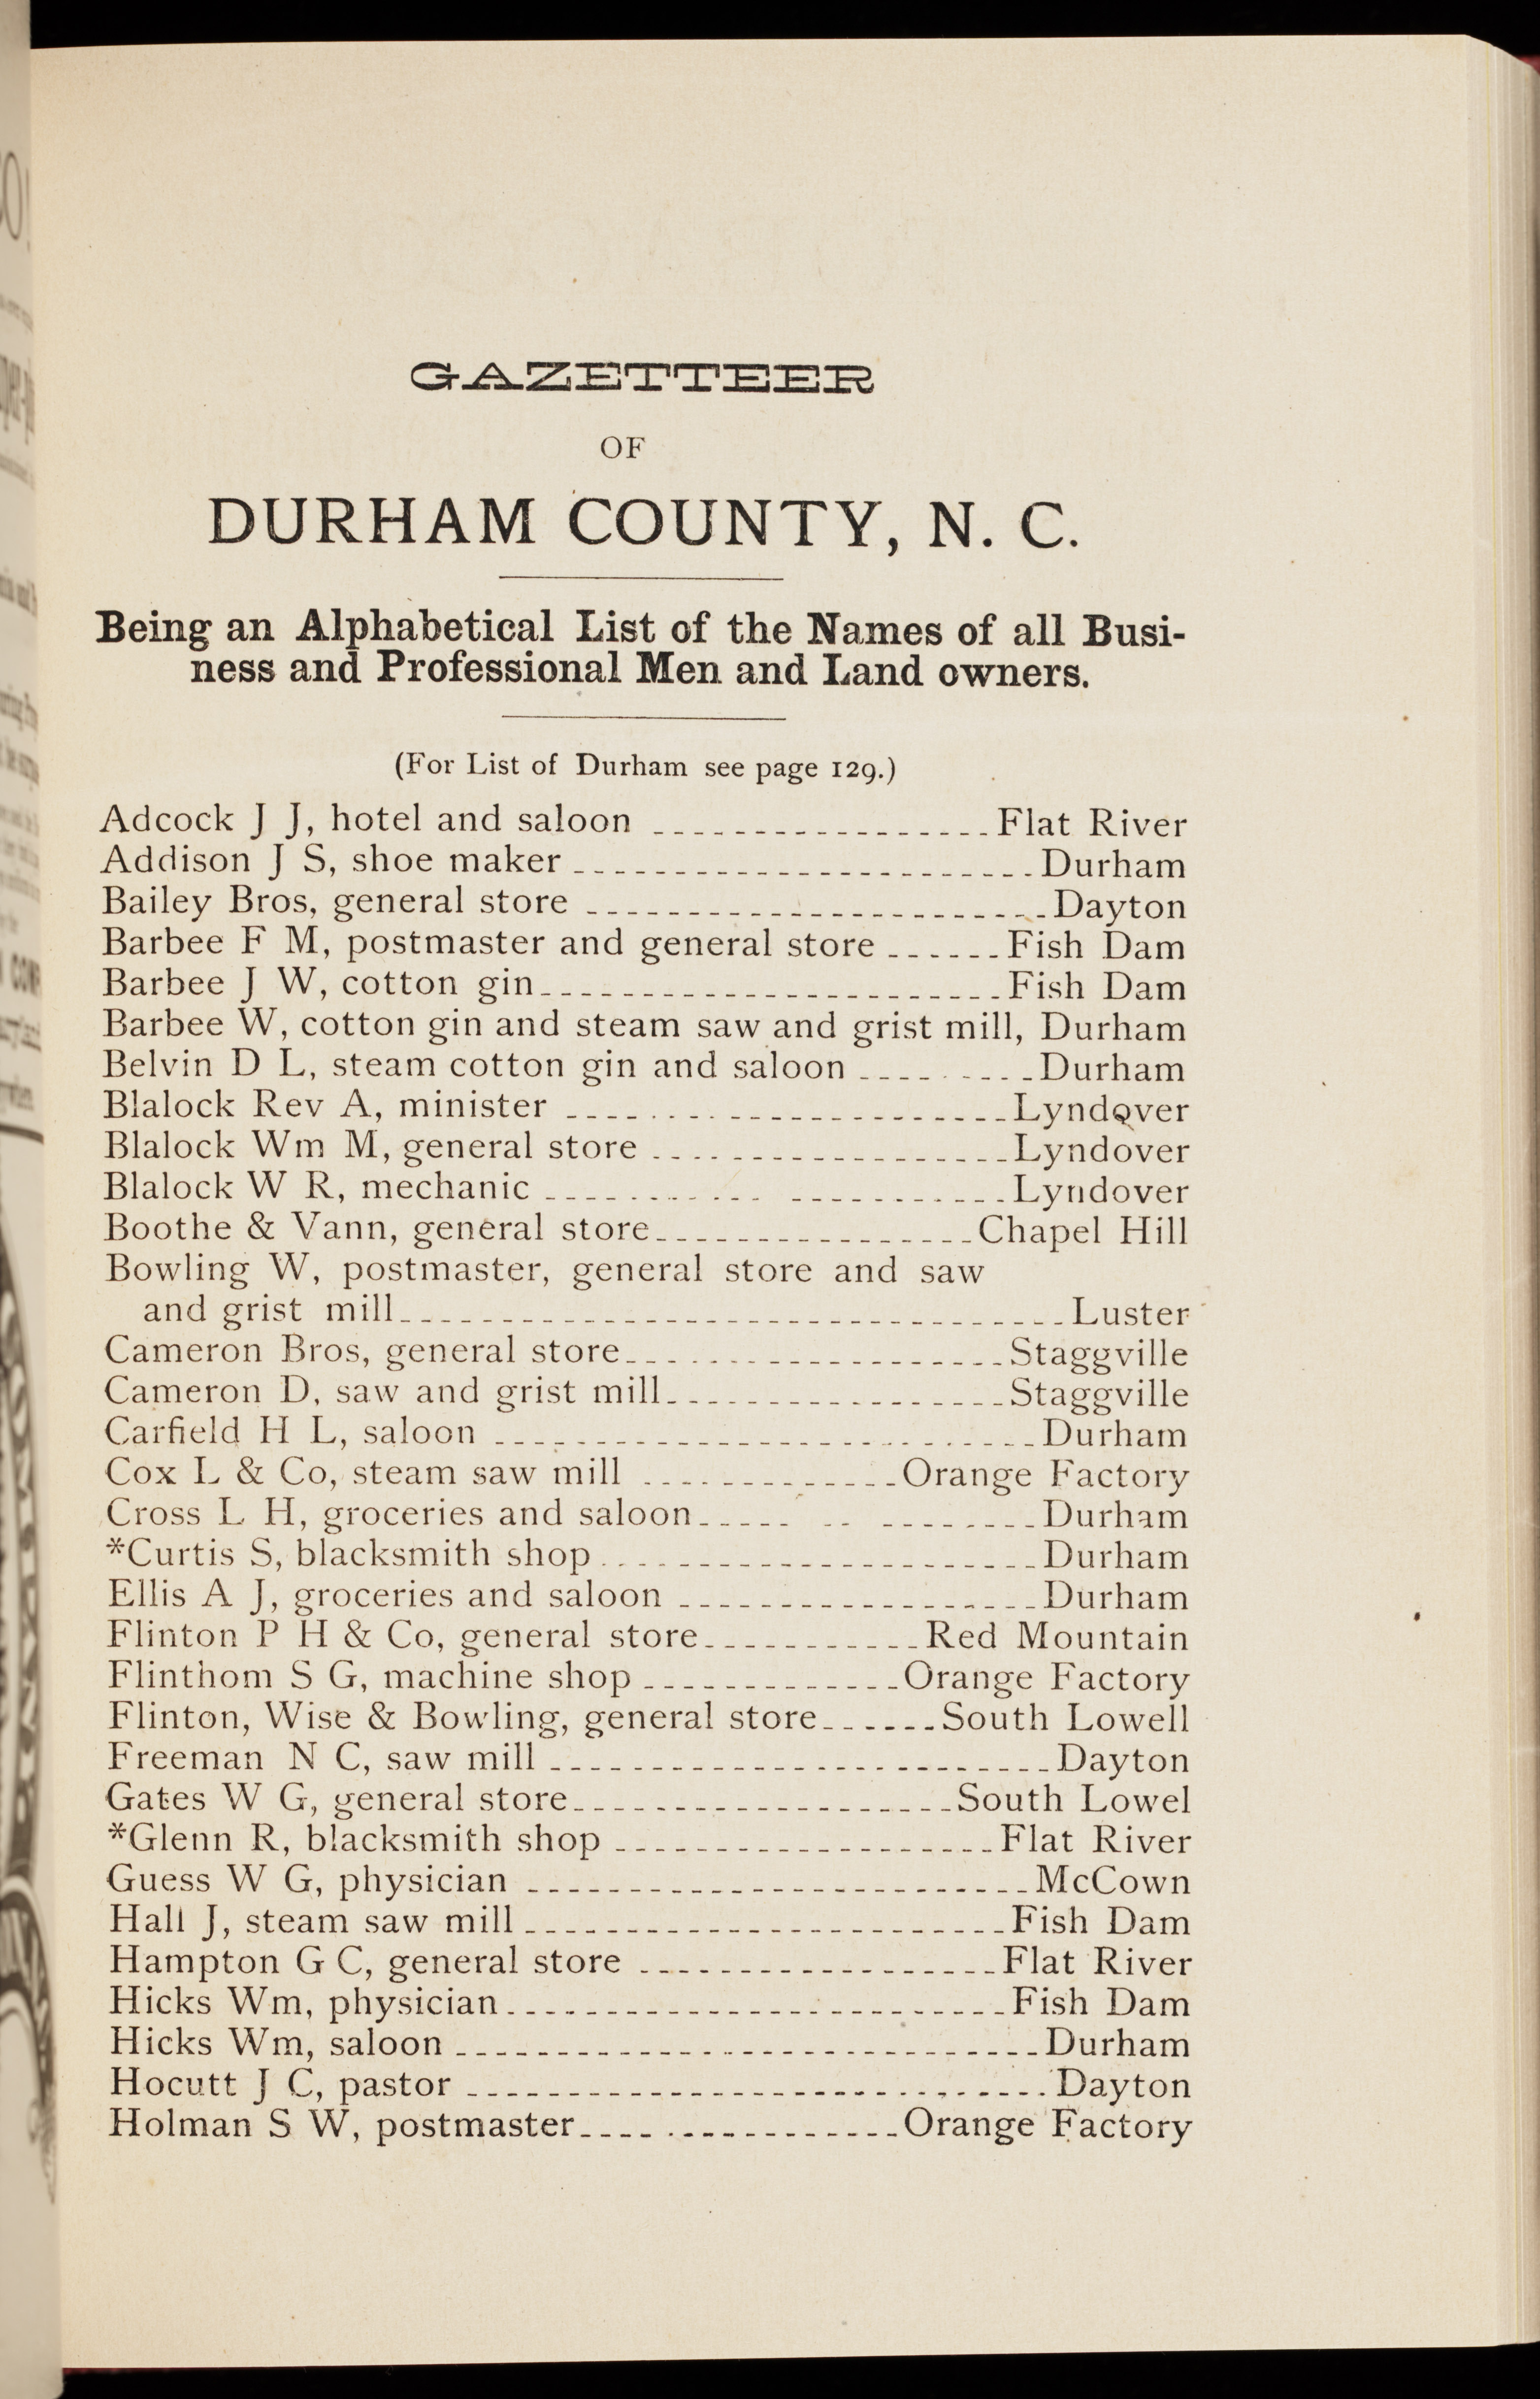 GAZETTEER
OF
DURHAM COUNTY, N. C.
Being an Alphabetical List of the Names of all Busi-
ness and Professional Men and Land owners.
(For List of Durham see page 129.)
Adcock J J, hotel and saloon ----------------- Flat River
Addison J S, shoe maker ----------------------- Durham
Bailey Bros, general store ----------------------- Dayton
Barbee F M, postmaster and general store ------ Fish Dam
Barbee J W, cotton gin ----------------------- Fish Dam
Barbee W, cotton gin and steam saw and grist mill, Durham
Belvin D L, steam cotton gin and saloon --------- Durham
Blalock Rev A, minister ---------------------- Lyndover
Blalock Wm M, general store ------------------ Lyndover
Blalock W R, mechanic ---------------------- Lyndover
Boothe & Vann, general store ---------------- Chapel Hill
Bowling W, postmaster, general store and saw
and grist mill --------------------------------- Luster
Cameron Bros, general store ------------------- Staggville
Cameron D, saw and grist mill ----------------- Staggville
Carfield H L, saloon --------------------------- Durham
Cox L & Co, steam saw mill ------------- Orange Factory
Cross L H, groceries and saloon --------------- Durham
*Curtis S, blacksmith shop ---------------------- Durham
Ellis A J, groceries and saloon ------------------ Durham
Flinton P H & Co, general store ----------- Red Mountain
Flinthom S G, machine shop ------------- Orange Factory
Flinton, Wise & Bowling, general store ------ South Lowell
Freeman N C, saw mill ------------------------- Dayton
Gates W G, general store ------------------- South Lowel
*Glenn R, blacksmith shop ------------------- Flat River
Guess W G, physician ------------------------- McCown
Hall J, steam saw mill ------------------------ Fish Dam
Hampton G C, general store ------------------ Flat River
Hicks Wm, physician ------------------------- Fish Dam
Hicks Wm, saloon ----------------------------- Durham
Hocutt J C, pastor ----------------------------- Dayton
Holman S W, postmaster ---------------- Orange Factory